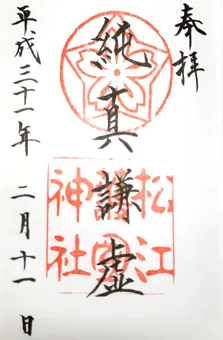 奉拝
純真 謙虚
松江
護國
神社
平成三十一年 二月十一日